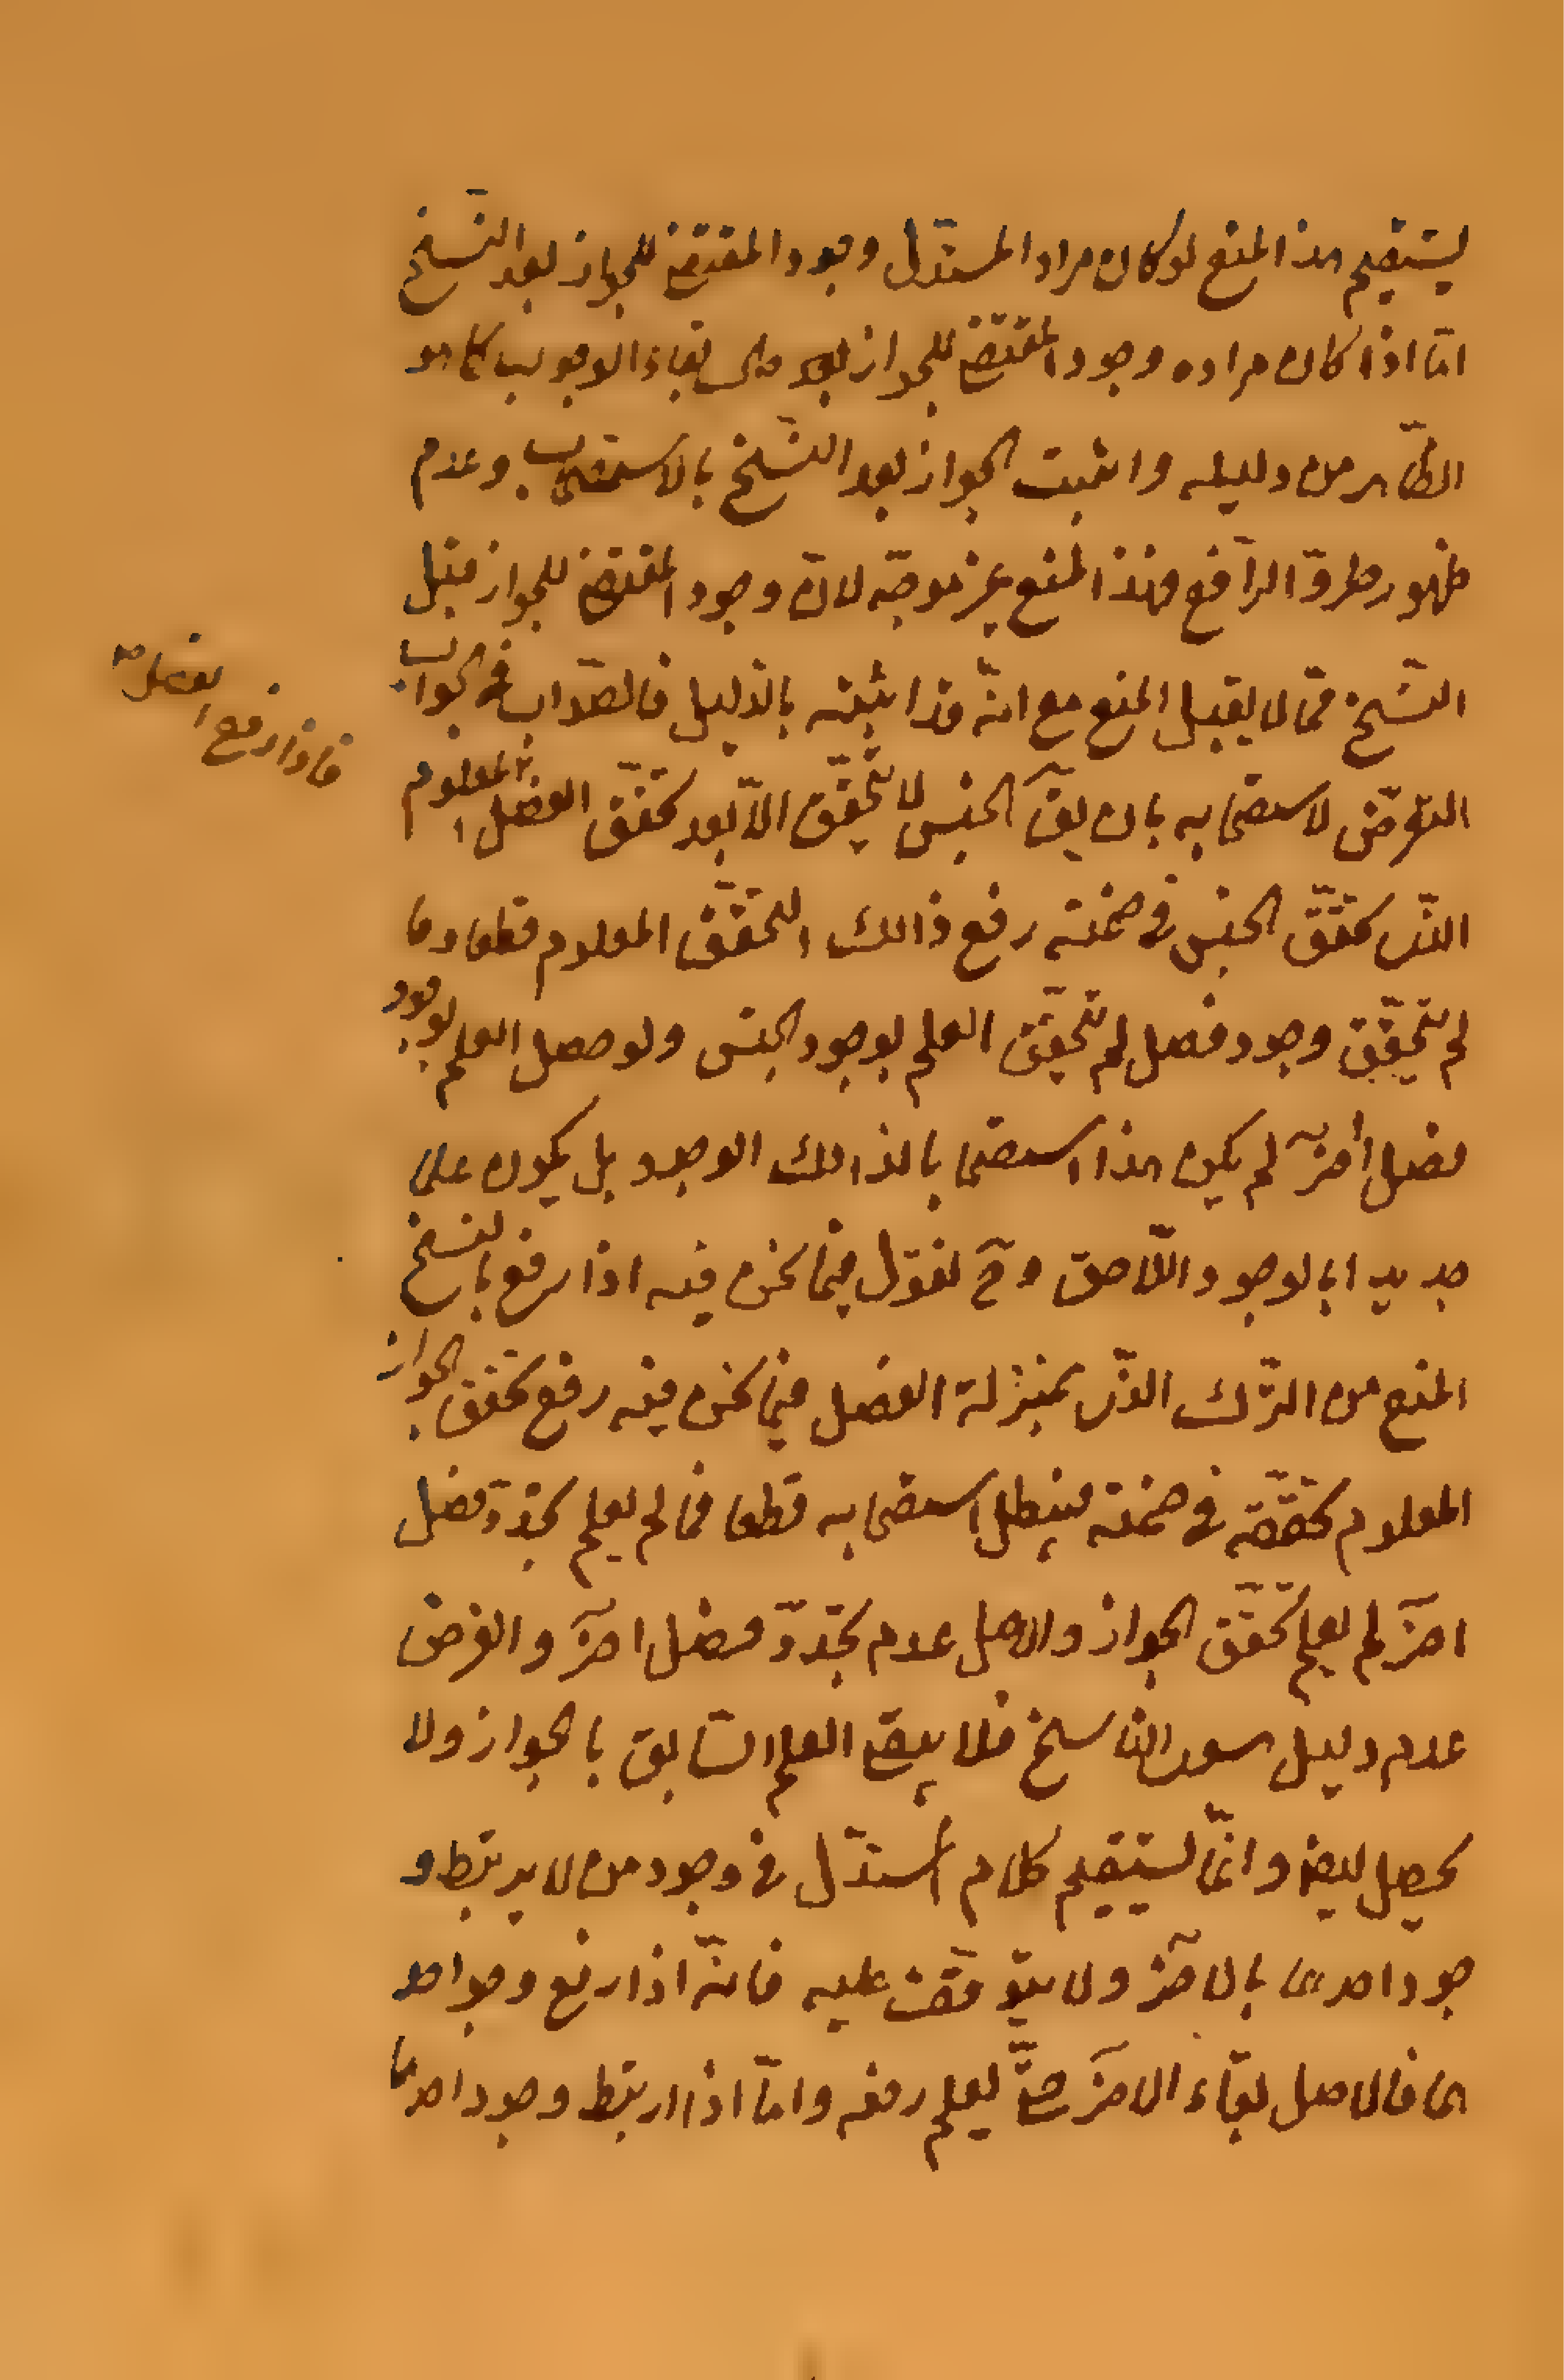 يستقيم هذا المنع لو كان مراد المستدل وجود المقتضى للجواز بعد النسخ
امّا اذا كان مراده وجود المقتضى للجواز بقاء الوجوب كما هو
الظّاهر من دليله واثبت الجواز بعد النّسخ بالاستصحاب وعدم
ظهور طروّ الرّافع فهذا المنع غير موجّه لانّ وجود المقتضى للجواز قبل
النّسخ ممّا لا يقبل المنع مع انّه قد اثبته بالدّليل فالصّواب فى الجواب
التعرّض لاستصحابه بان يقٓ الجنس لا يتحقّق الّا بعد تحقّق الفصل المعلوم
فاذا رفع الفصل صح
الذّى تحقّق الجنس فى ضمنه رفع ذالك التحقّق المعلوم قطعا وما
لم يتحقّق وجود فصل لم يتحقّق العلم بوجود الجنس ولو حصل العلم بوجود
فصل اخرٓ لم يكن هذا استصحابا لذالك الوجود بل يكون علما
جديدا بالوجود اللّاحق وحٓ نقول فيما نحن فيه اذا رفع بالنسخ
المنع من التّرك الذّى بمنزلة الفصل فيما نحن فيه رفع تحقق الجواز
المعلوم تحقّقه فى ضمنه فيبطل استصحابه قطعا فما لم يعلم تجدّد فصل
اخرٓ لم يعلم تحقّق الجواز والاصل عدم تجدّد فصل اخرٓ والفرض
عدم دليل سوى الناسخ فلا يبقى العلم السّابق بالجواز ولا
يحصل ايضا وانّما يستقيم كلام المستدّل فى وجود من لا يرتبط و
جود احدهما بالاخرٓ ولا يتوقّف عليه فانّه اذا رفع وجود احد
هما فالاصل بقاء الاخرٓ حتّى يعلم رفعه وامّا اذا ارتبط وجود احدهما